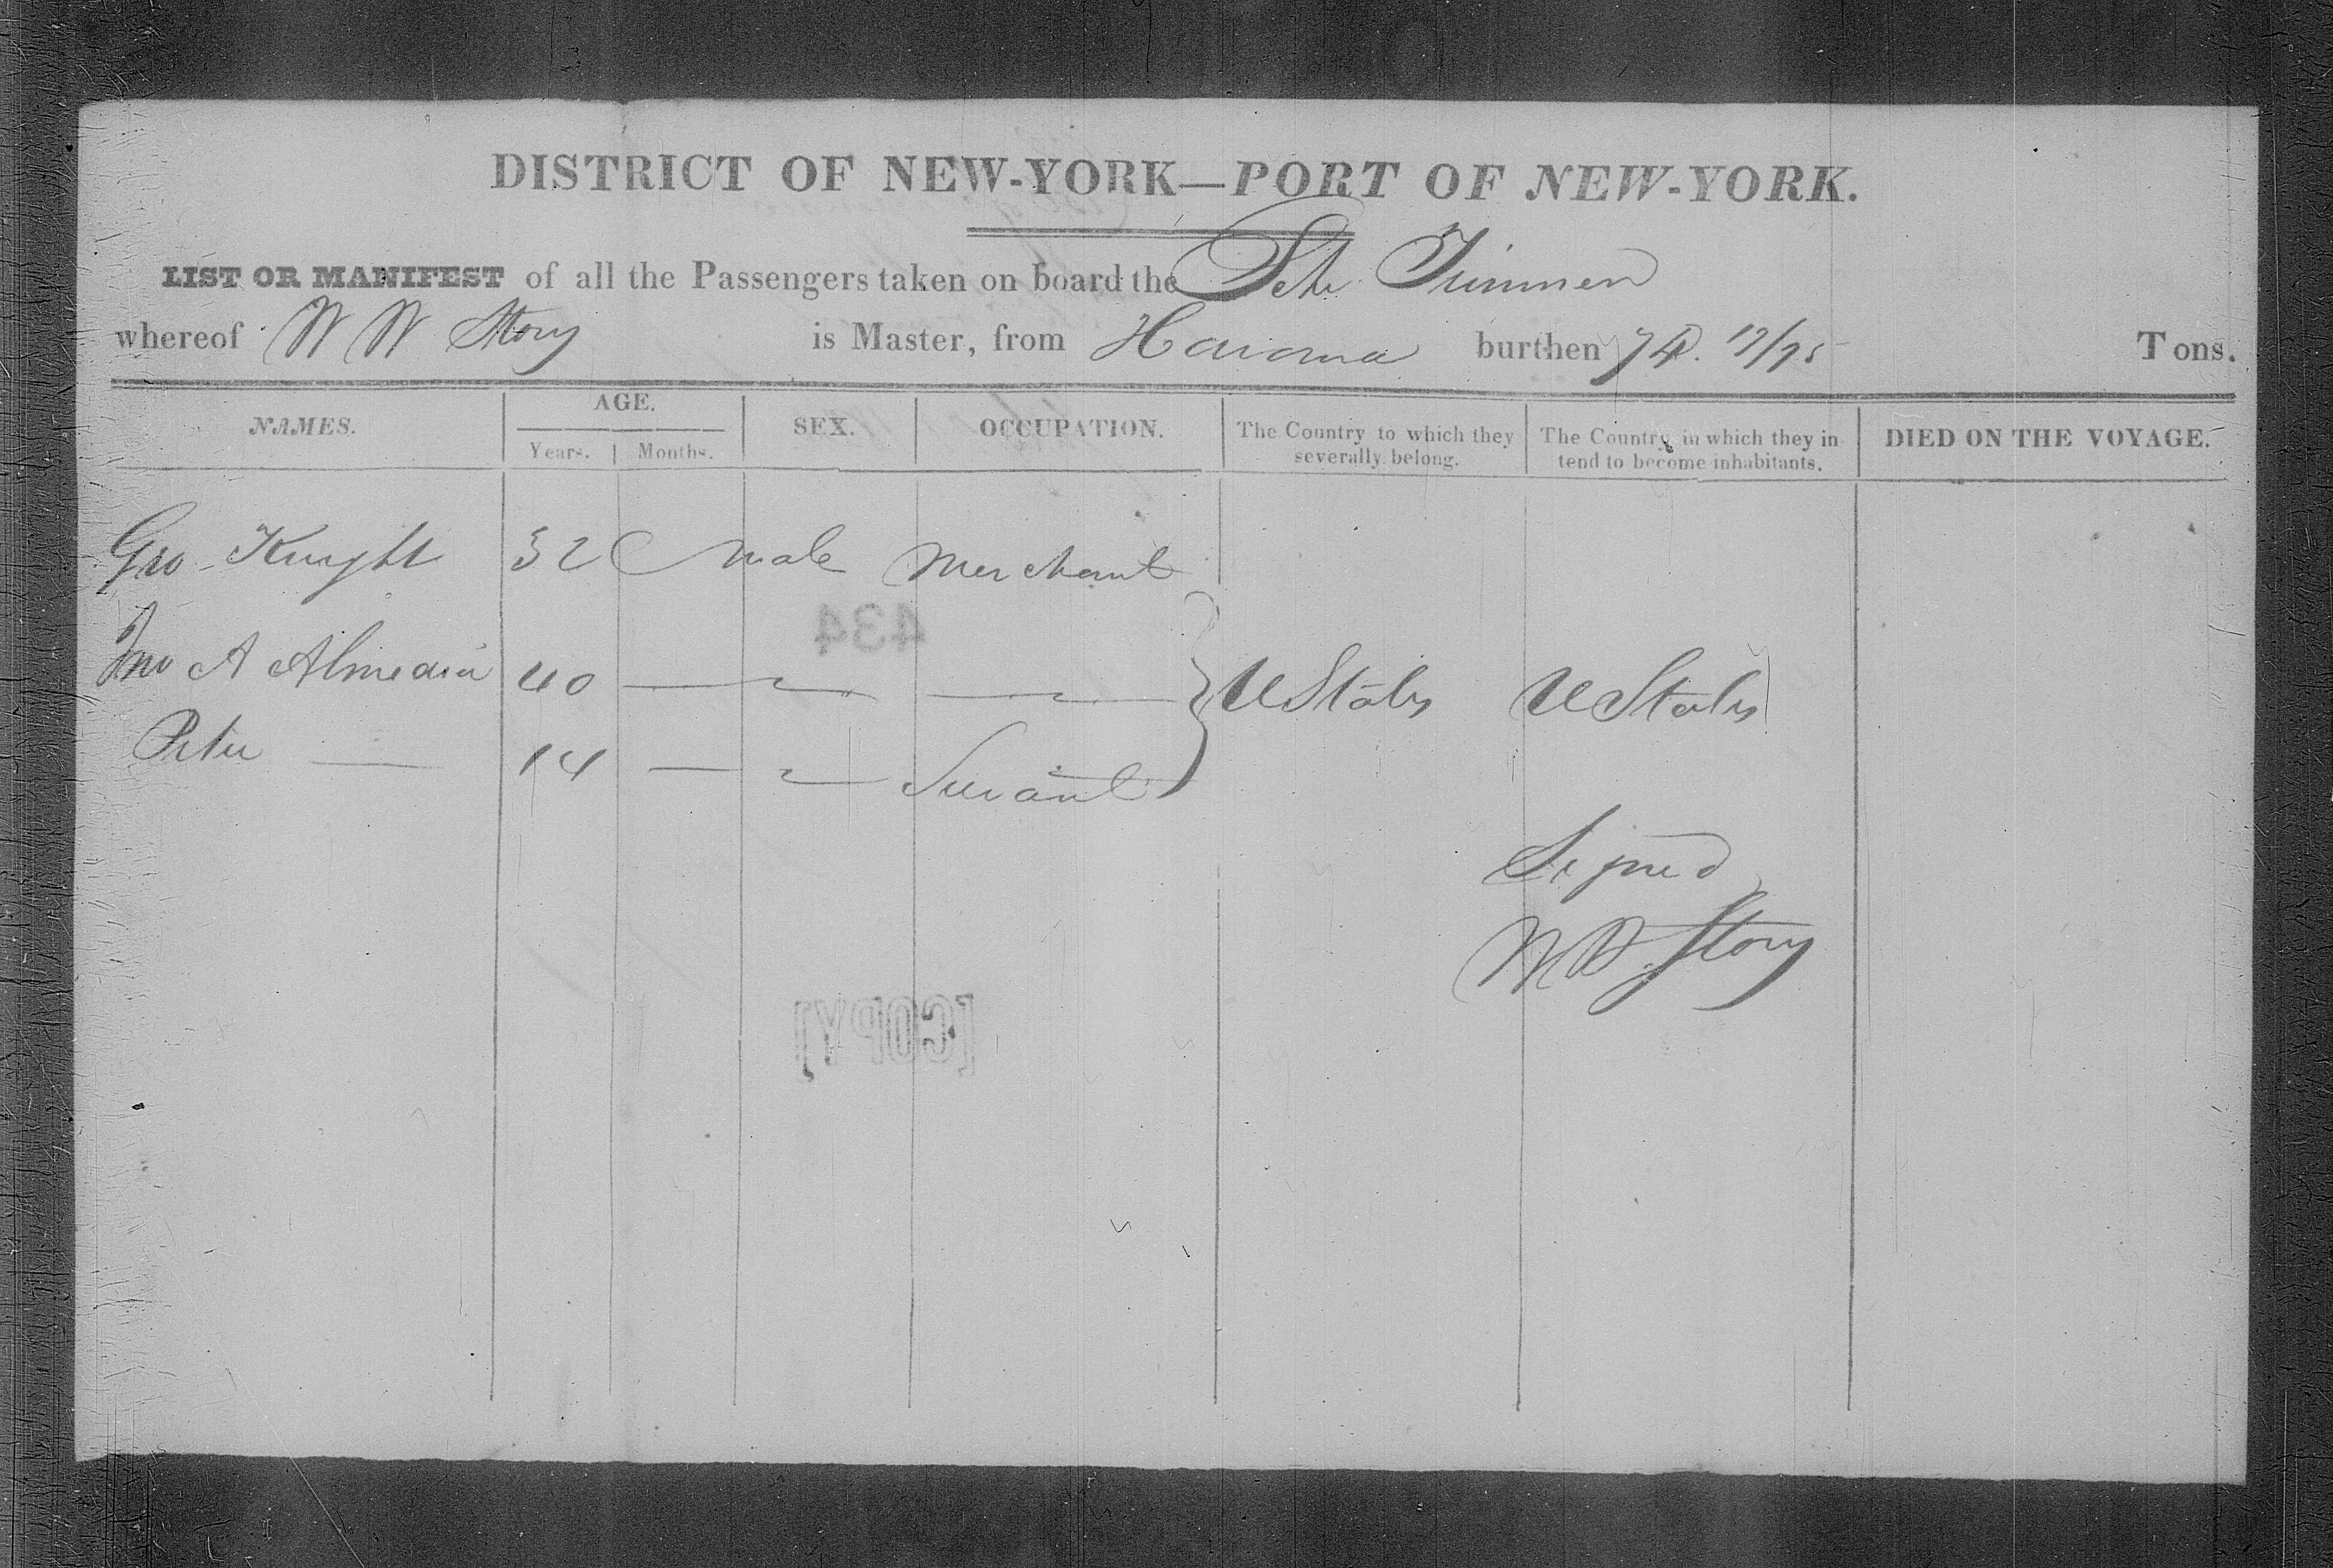 DISTRICT OF NEW-YORK—PORT OF NEW-YORK.
LIST OR MANIFEST of all the Passengers taken on board the Sch
whereof W W Story is Master, from Havana burthen 74. Tons.
NAMES. AGE. SEX. OCCUPATION. The Country to which they severally belong. The Country in which they intend to become inhabitants. DIED ON THE VOYAGE.
Years. Months.
Geo Knight 32 Male Merchant
434
Jno A Almedia 40 — — U States U States
Peter — 14 — — Servant
Signed
W W Story
[COPY]